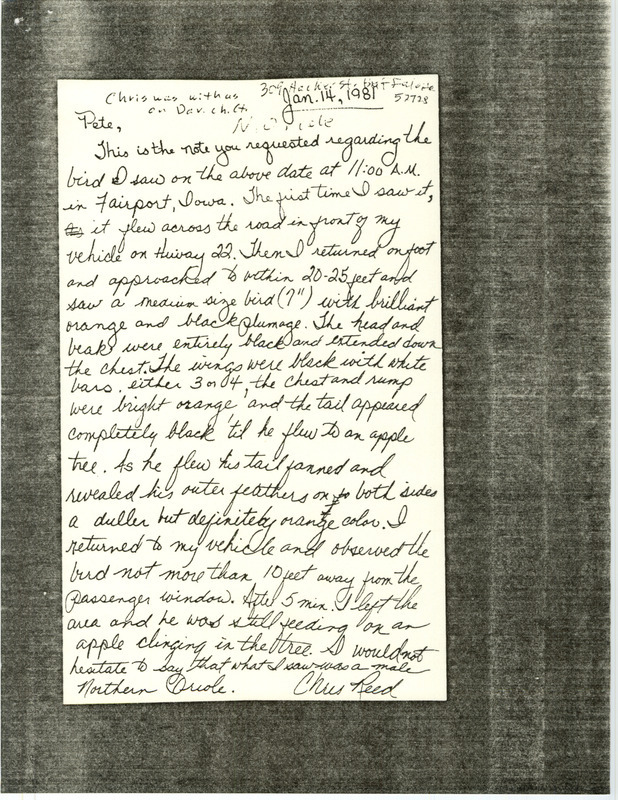 Chris was with us
on Dav. Ch. Ct.
309
52778
Jan. 14, 1981
N. Oriole
Pete,
This is the note you requested regarding the
bird I saw on the above date at 11:00 A.M.
in Fairport, Iowa. The first time I saw it,
it flew across the road in front of my
vehicle on Huiway 22. Then I returned on foot
and approached to within 20-25 feet and
saw a medium size bird (7") with brilliant
orange and black plumage. The head and
beak were entirely black and extended down
the chest. The wings were black with white
bars, either 3 or 4, the chest and rump
were bright orange and the tail appeared
completely black til he flew to an apple
tree. As he flew his tail fanned and
revealed his outer feathers on both sides
a duller but definitely orange color. I
returned to my vehicle and observed the
bird not more than 10 feet away from the
passenger window. After 5 min. I left the
area and he was still feeding on an
apple clinging in the tree. I would not
hesitate to say that what I saw was a male
Northern Oriole. Chris Reed